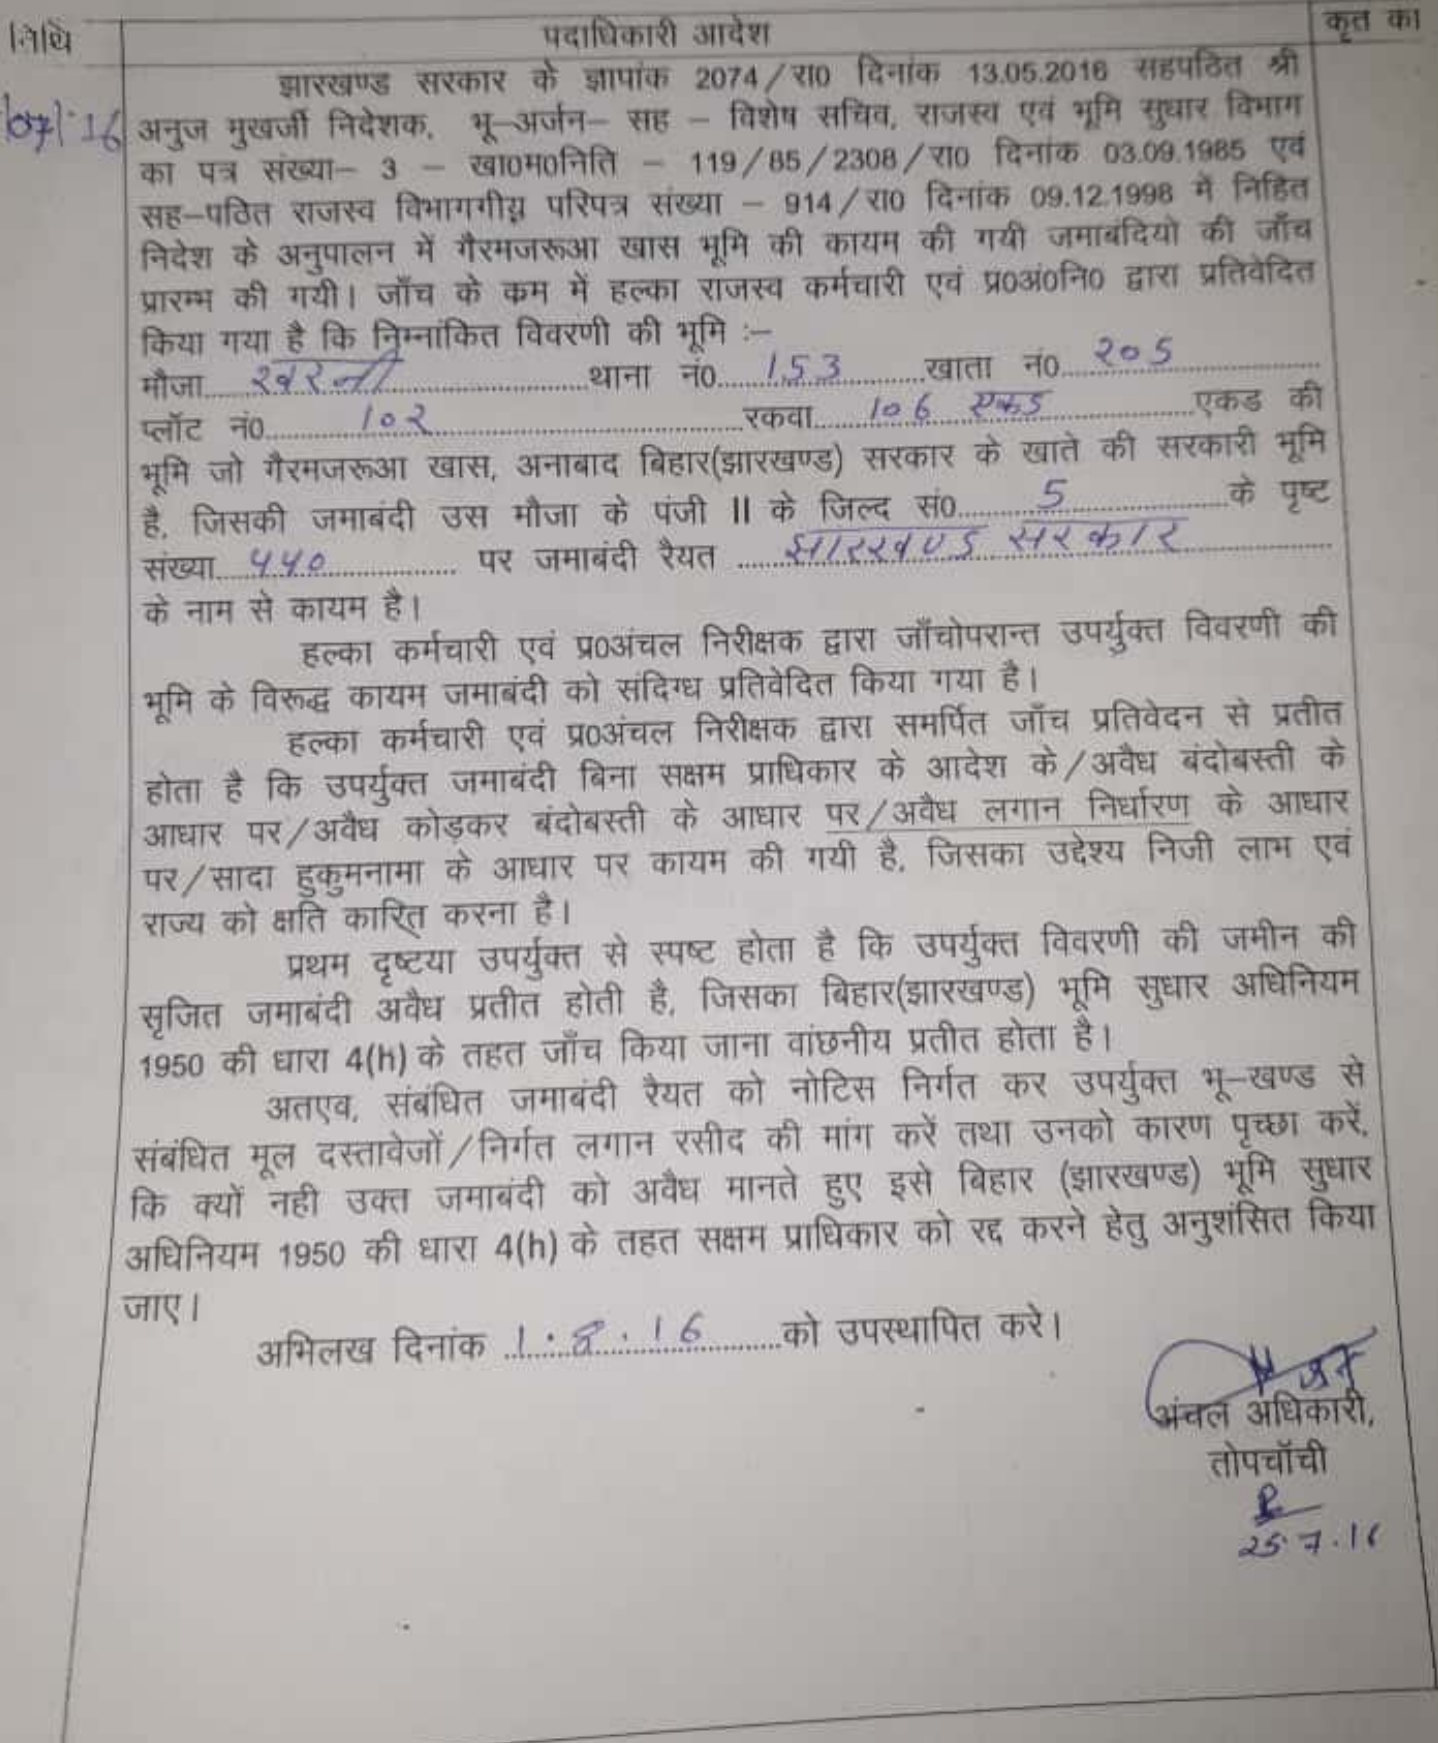 तिथि पदाधिकारी आदेश कृत का
झारखण्ड सरकार के ज्ञापांक 2074/रा0 दिनांक 13.05.2016 सहपठित श्री
07/16 अनुज मुखर्जी निदेशक, भू–अर्जन– सह – विशेष सचिव, राजस्व एवं भूमि सुधार विभाग
का पत्र संख्या– 3 – खा0म0निति – 119/85/2308/रा0 दिनांक 03.09.1985 एवं
सह–पठित राजस्व विभागगीय परिपत्र संख्या – 914/रा0 दिनांक 09.12.1998 में निहित
निदेश के अनुपालन में गैरमजरूआ खास भूमि की कायम की गयी जमाबंदियो की जाँच
प्रारम्भ की गयी। जाँच के कम में हल्का राजस्व कर्मचारी एवं प्र0अं0नि0 द्वारा प्रतिवेदित
किया गया है कि निम्नांकित विवरणी की भूमि :–
मौजा खरनी थाना नं0 153 खाता नं0 २०5
प्लॉट नं0 10२ रकवा 106 एकड एकड की
भूमि जो गैरमजरूआ खास, अनाबाद बिहार(झारखण्ड) सरकार के खाते की सरकारी भूमि
है, जिसकी जमाबंदी उस मौजा के पंजी II के जिल्द सं0 5 के पृष्ट
संख्या 440 पर जमाबंदी रैयत झारखण्ड सरकार
के नाम से कायम है।
हल्का कर्मचारी एवं प्र0अंचल निरीक्षक द्वारा जाँचोपरान्त उपर्युक्त विवरणी की
भूमि के विरूद्ध कायम जमाबंदी को संदिग्ध प्रतिवेदित किया गया है।
हल्का कर्मचारी एवं प्र0अंचल निरीक्षक द्वारा समर्पित जाँच प्रतिवेदन से प्रतीत
होता है कि उपर्युक्त जमाबंदी बिना सक्षम प्राधिकार के आदेश के/अवैध बंदोबस्ती के
आधार पर/अवैध कोड़कर बंदोबस्ती के आधार पर/अवैध लगान निर्धारण के आधार
पर/सादा हुकुमनामा के आधार पर कायम की गयी है, जिसका उद्देश्य निजी लाभ एवं
राज्य को क्षति कारित् करना है।
प्रथम दृष्टया उपर्युक्त से स्पष्ट होता है कि उपर्युक्त विवरणी की जमीन की
सृजित जमाबंदी अवैध प्रतीत होती है, जिसका बिहार(झारखण्ड) भूमि सुधार अधिनियम
1950 की धारा 4(h) के तहत जाँच किया जाना वांछनीय प्रतीत होता है।
अतएव, संबंधित जमाबंदी रैयत को नोटिस निर्गत कर उपर्युक्त भू–खण्ड से
संबंधित मूल दस्तावेजों/निर्गत लगान रसीद की मांग करें तथा उनको कारण पृच्छा करें,
कि क्यों नही उक्त जमाबंदी को अवैध मानते हुए इसे बिहार (झारखण्ड) भूमि सुधार
अधिनियम 1950 की धारा 4(h) के तहत सक्षम प्राधिकार को रद्द करने हेतु अनुशंसित किया
जाए।
अभिलख दिनांक 1.8.16 को उपस्थापित करे।
अंचल अधिकारी,
तोपचाँची
25.7.16